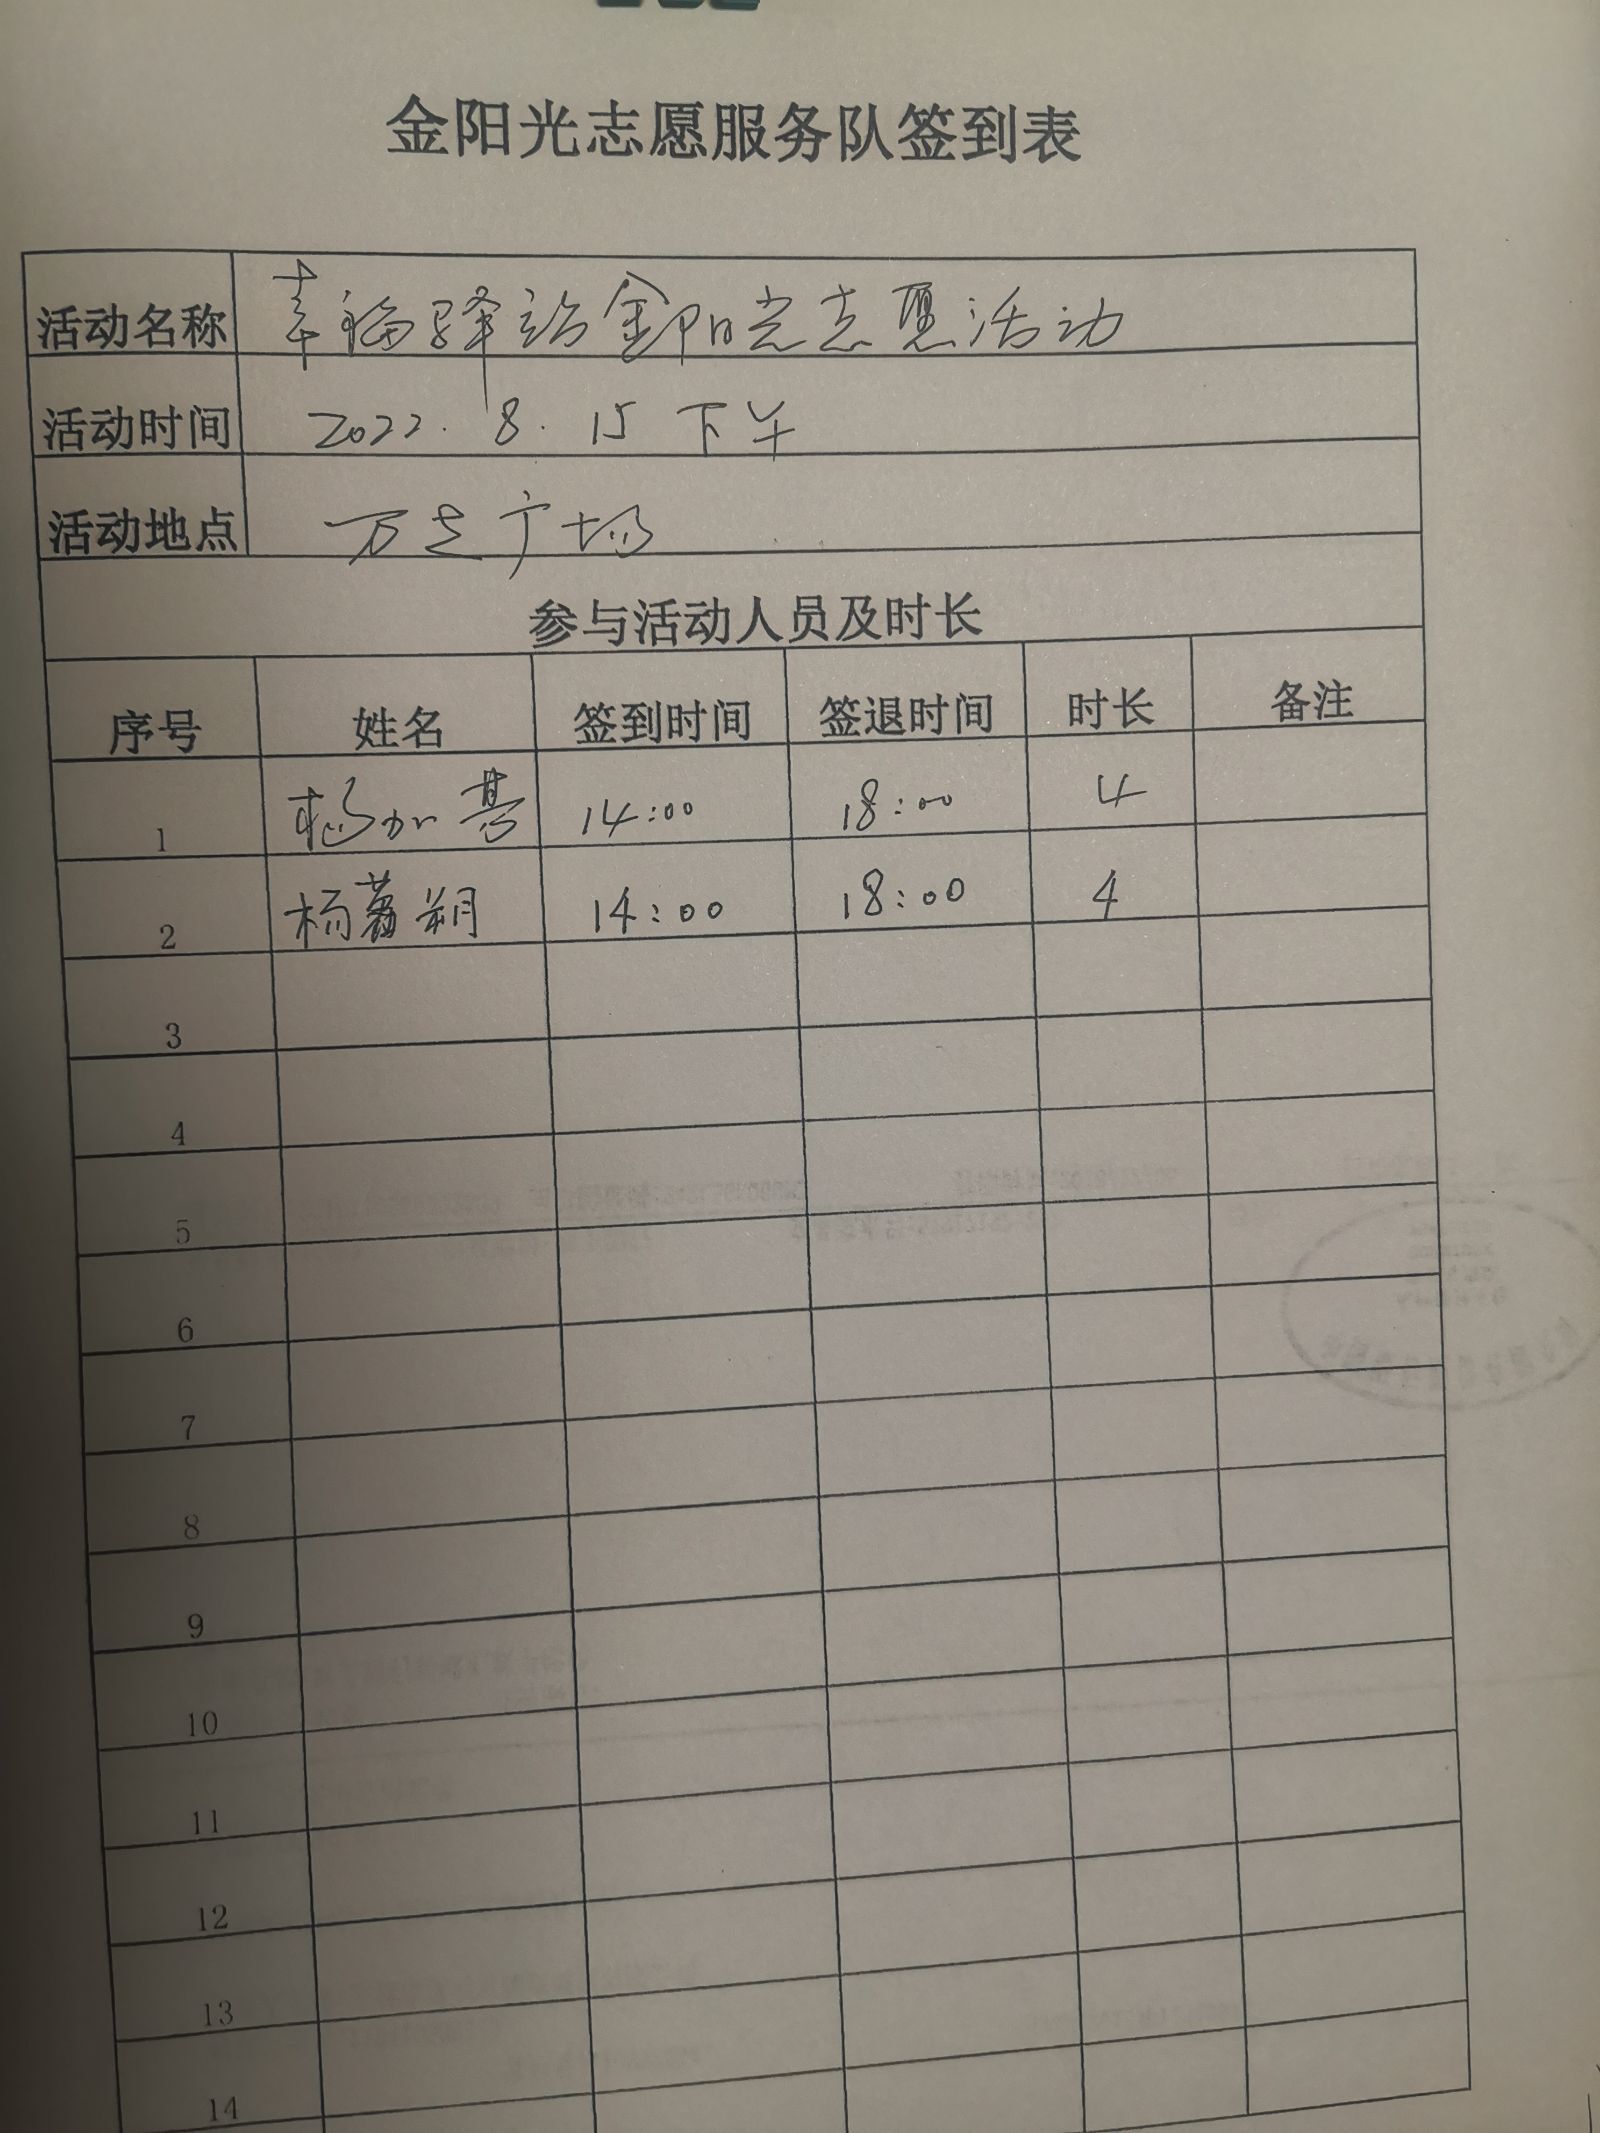 金阳光志愿服务队签到表
活动名称 幸福驿站金阳光志愿活动
活动时间 2022.8.15 下午
活动地点 万达广场
参与活动人员及时长
序号 姓名 签到时间 签退时间 时长 备注
1 杨加 14:00 18:00 4
2 杨 朔 14:00 18:00 4
3
4
5
6
7
8
9
10
11
12
13
14